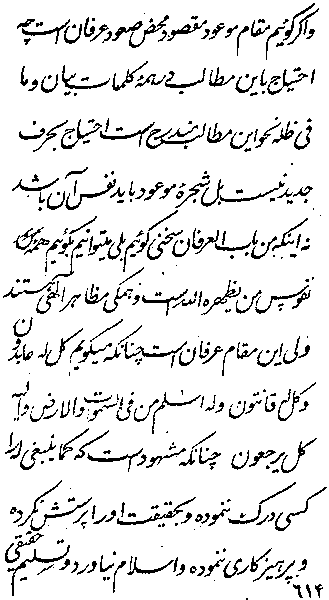 واگر گوئیم مقام موعود مقصود محض صعود عرفان است چه
احتیاج باین مطالب در همهٔ کلمات بیان و ما
فی ظله نحو این مطالب مندرج است احتیاج بحرف
جدید نیست بل شجرهٔ موعود باید نفس آن باشد
نه اینکه من باب العرفان سخنی گوئیم بلی میتوانیم بگوئیم همهٔ
نفوس من یظهره الله است و همگی مظاهر الهی هستند
ولی این مقام عرفان است چنانکه میگویم کل له عابدون
و کل له قانتون وله اسلم من فی السموات والارض والیه
کل یرجعون چنانکه مشهود است که کما ینبغی او را
کسی درک ننموده و بحقیقت او را پرستش نکرده
و پرهیزکاری ننموده و اسلام نیاورد و تسلیم حقیقی
۶۱۴